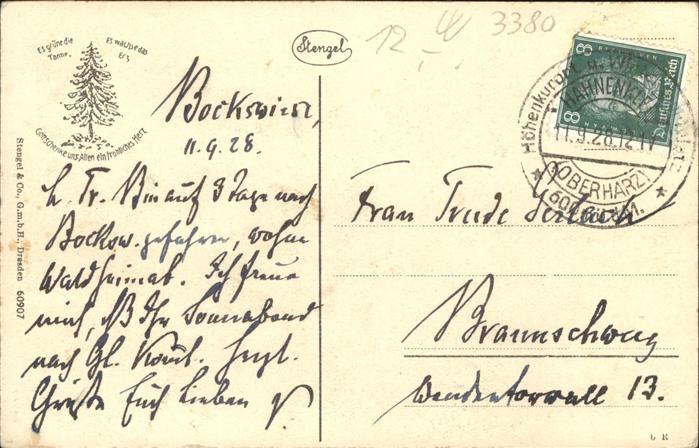 Es grüne die Tanne,
Es wachse das Erz
Gott schenke uns Allen ein fröhliches Herz
Stengel
12.-
3380
Bockswiese,
11.9.28.
L. Tr. Bin auf 3 Tage nach
Bocksw. gefahren, wohne
Waldheimat. Ich freue
mich, daß Ihr Sonnabend
nach Gl. kommt. Herzl.
Grüße Euch Lieben
Frau Trude
Braunschweig
Wendentorwall 13.
8 8
Deutsches Reich
Höhenkurort
HAHNENKLEE
11.9.28.12-1V
(OBERHARZ)
600
Stengel & Co., G.m.b.H., Dresden 60907